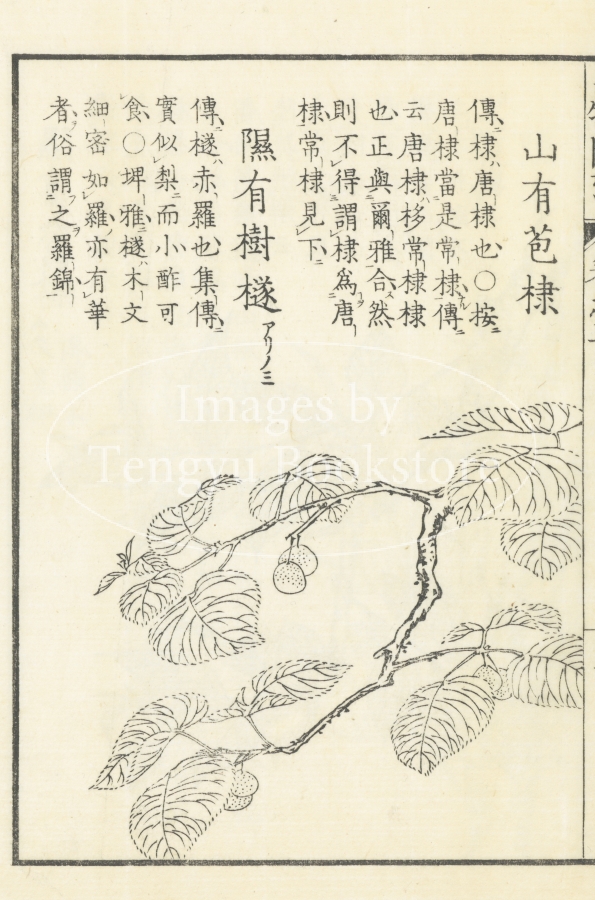 山有苞棣
傳棣唐棣也〇按
唐棣當是常棣傳
云唐棣栘常棣棣
也正與爾雅合然
則不得謂棣爲唐
棣常棣見下
隰有樹檖 アリノミ
傳檖赤羅也集傳
實似梨而小酢可
食〇埤雅檖木文
細密如羅亦有華
者俗謂之羅錦
Images by
Tengyu Bookstore